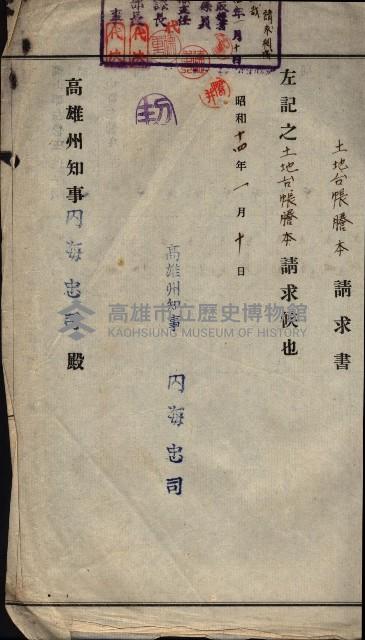 土地台帳謄本 請求書
左記之土地台帳謄本請求候也
昭和十四年一月十日
高雄州知事 内海忠司
高雄州知事内海忠司 殿
高雄市立歷史博物館
KAOHSIUNG MUSEUM OF HISTORY